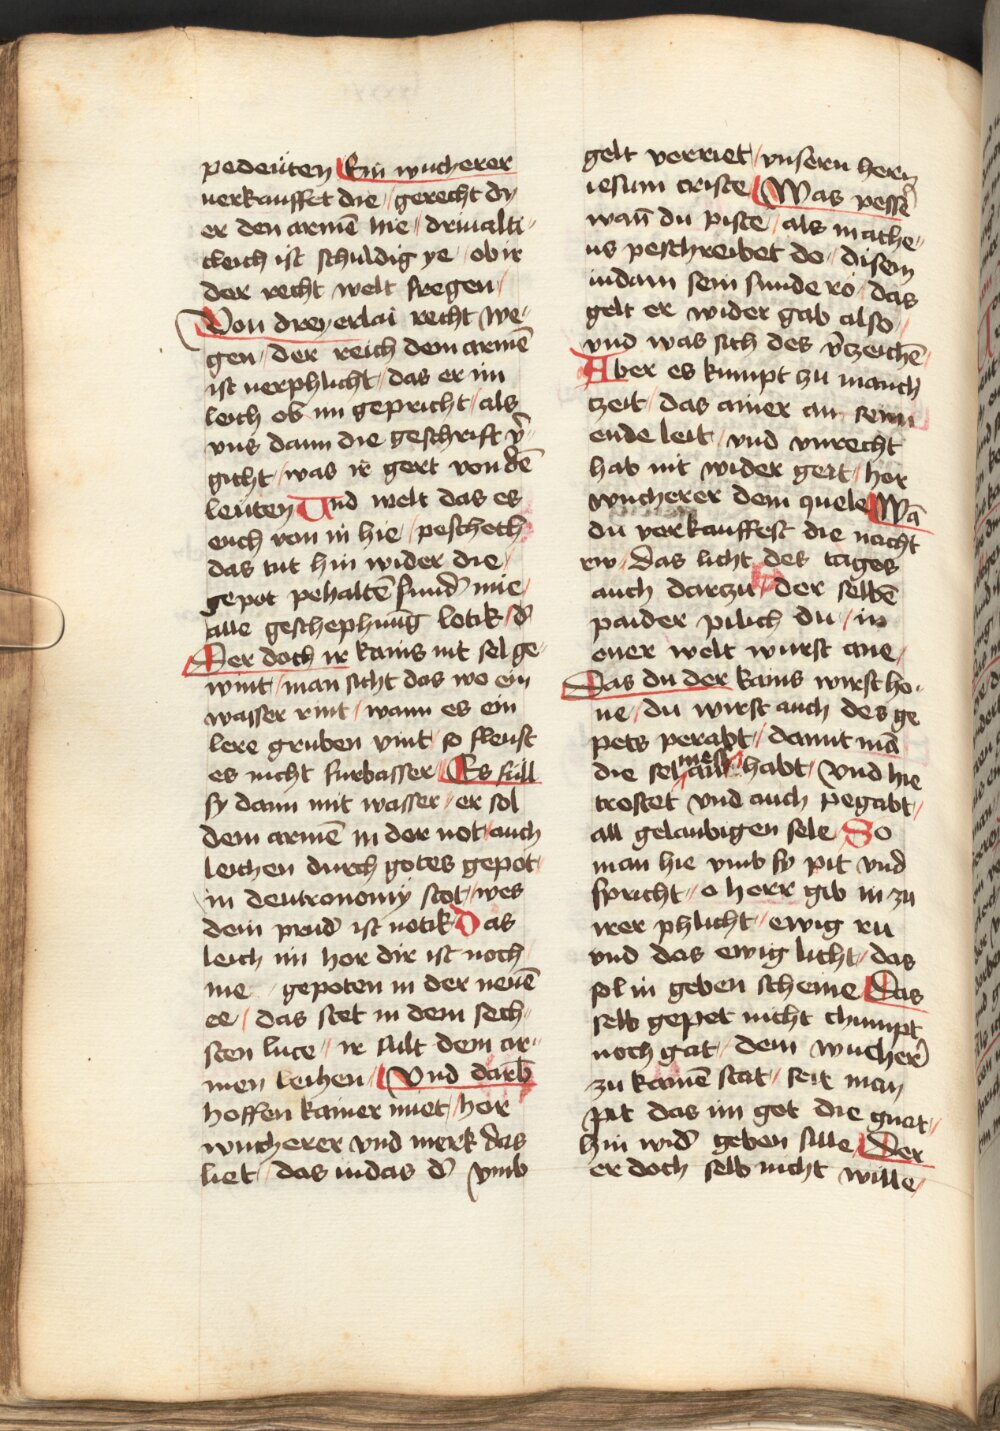 pedeüten Ein wucherer
uerkauffet die / gerecht dy
er den armē hie / driualti-
cleich ist schuldig ye / ob ir
der recht welt fregen /
Von dreyerlai recht we-
gen / der reich dem armē
ist uerphlicht / das er im
leich ob im gepricht / als
vns dann die geschrift v̄-
gicht / was ir gert von dē
leüten Vnd welt das es
euch von in hie / peschech
das tut hin wider die /
gepot pehaltē sund' mie /
alle geschephūg lotik / d'
Der doch ir kains nit sel ge-
wint / man sicht das wo ein
wasser rint / wann es ein
lere gruben vint / so fleust
es nicht furbasser / Es full
sy dann mit wasser / er sol
dem armē in der not / auch
leichen durch gotes gepot /
in deutronomy stot / wes
dem prud' ist notik Das
leich im hor dir ist noch
me gepoten in der neuē
ee / das stet in dem sech-
sten luce / ir sült dem ar-
men leihen / Vnd darb
hoffen kainer miet / hor
wucherer vnd merk das
liet / das iudas d' vmb
gelt verriet / vnsern hern
iesum criste / Was pesse'
wan̄ du piste / als mathe-
us peschreibet do / disem
iudam sein sunde ro / das
gelt er wider gab also /
vnd was sich des v̄zeichē /
Aber es kumpt zu manch
czeit / das ainer an senn
ende leit / vnd vnrecht
hab nit wider geit / hor
wucherer dem quele / Wā
du verkauffest die nacht
rw / das licht des tages
auch darzu / der selbē
paider pilich du / in
ener welt wurst ane /
Das du der kains wirst ho-
ne / du wirst auch des ge
pets perabt / damit mā
die sel mess habt / Vnd hie
trostet vnd auch pegabt /
all gelaubigen sele / So
man hie vmb sy pit vnd
spricht / o herr gib in zu
irer phlicht / ewig ru
vnd das ewig licht / das
sol in geben scheine / Das
selb gepet nicht chumpt
noch gat / dem wucher'
zu kainē stat / seit man
pit das im got die guet /
hin wid' geben sille / Der
er doch selb nicht wille /